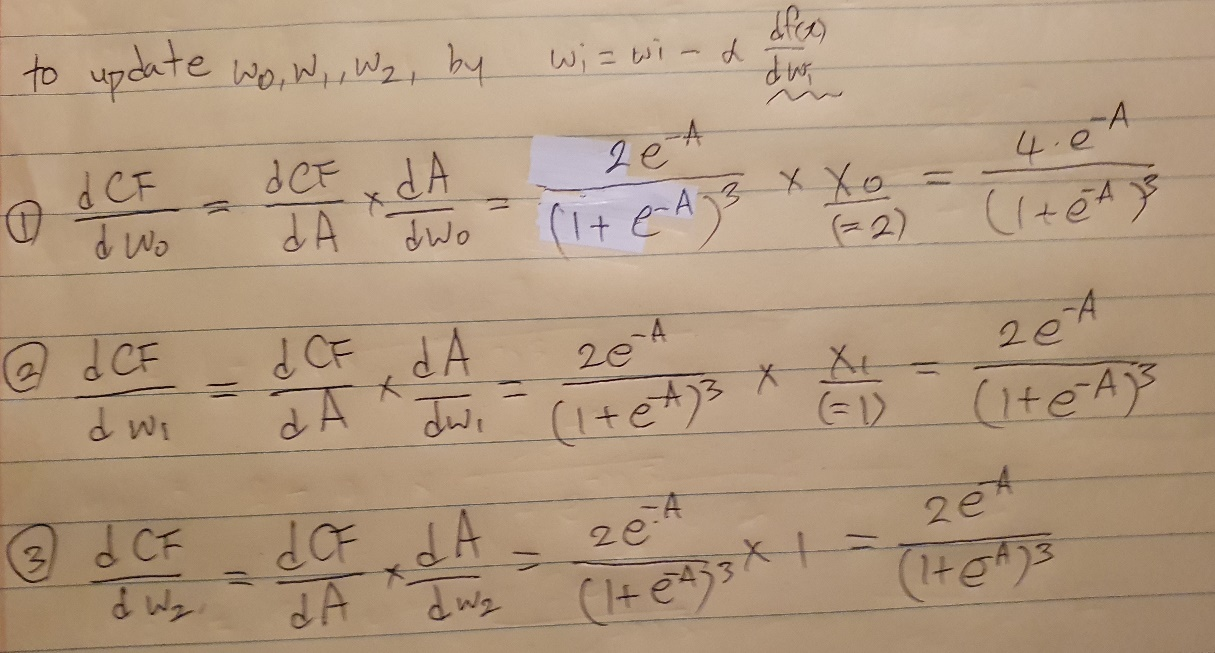 to update w₀, w₁, w₂, by wᵢ = wi - α df(x)/dwᵢ
① dCF/dw₀ = dCF/dA × dA/dw₀ = 2e^-A/(1+e^-A)^3 × X₀ (=2) = 4.e^-A/(1+e^-A)^3
② dCF/dw₁ = dCF/dA × dA/dw₁ = 2e^-A/(1+e^-A)^3 × X₁ (=1) = 2e^-A/(1+e^-A)^3
③ dCF/dw₂ = dCF/dA × dA/dw₂ = 2e^-A/(1+e^-A)^3 × 1 = 2e^-A/(1+e^-A)^3